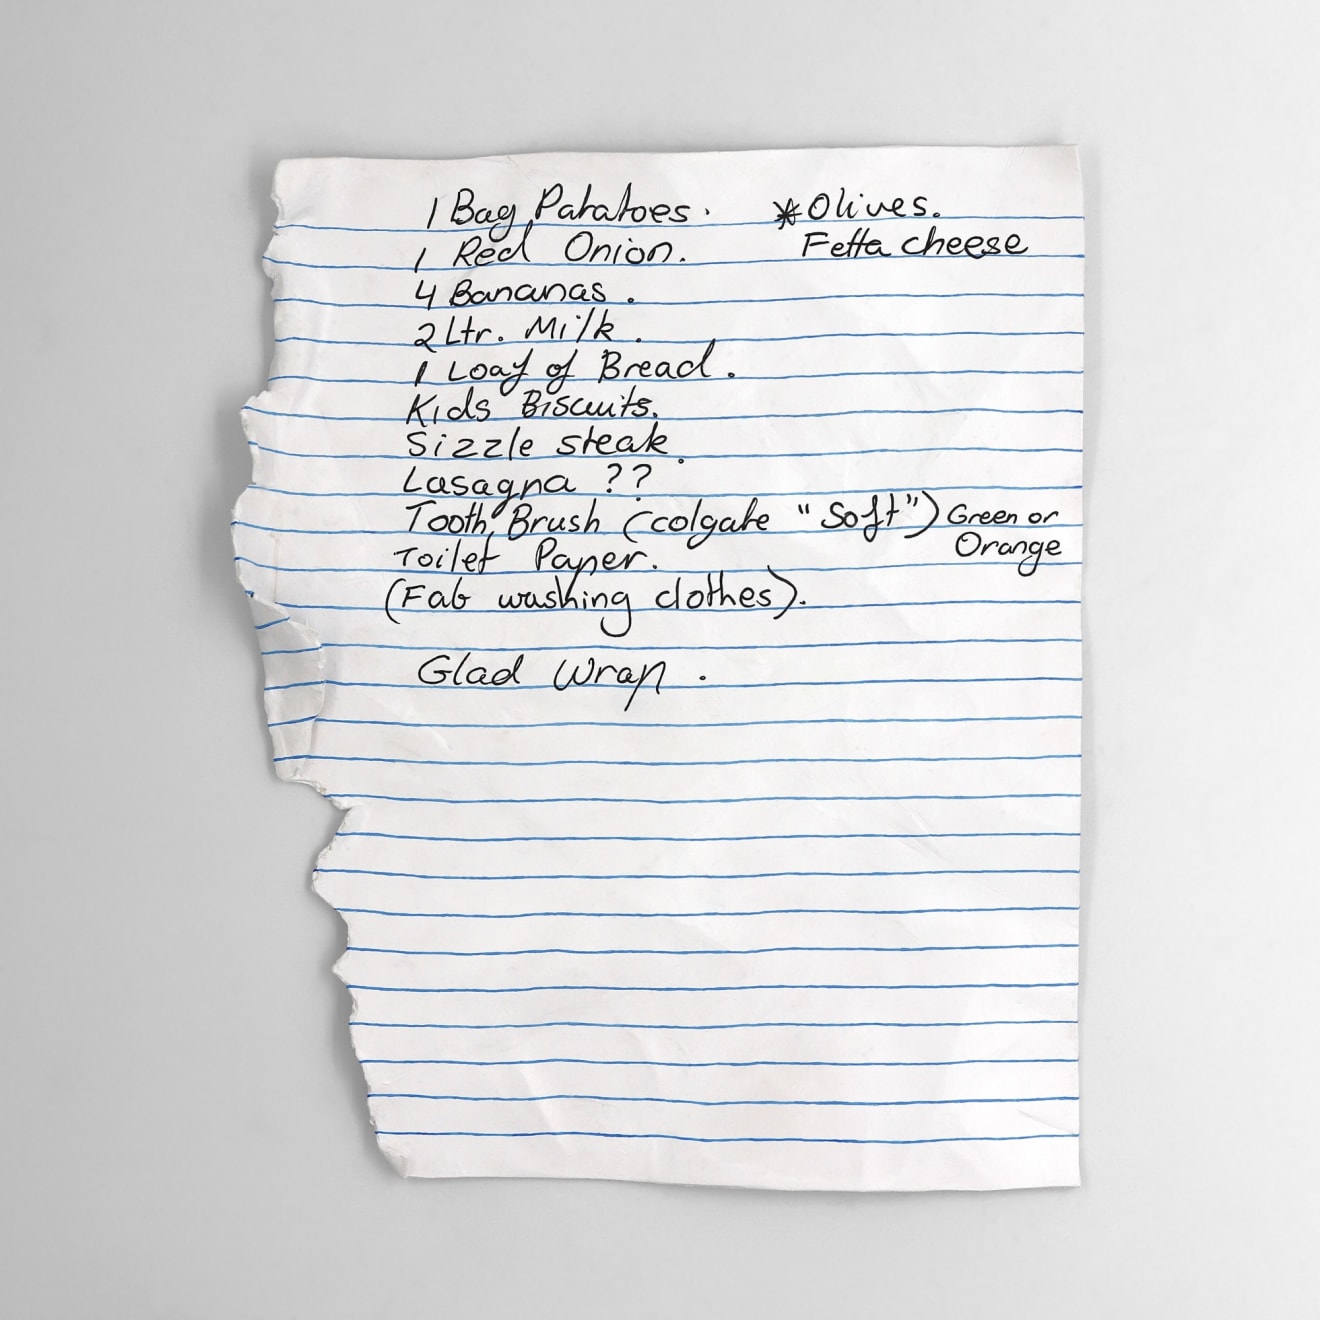 1 Bag Patatoes.
1 Red Onion.
4 Bananas.
2 Ltr. Milk.
1 Loaf of Bread.
Kids Biscuits.
Sizzle steak.
Lasagna ??
Tooth Brush (colgate "Soft") Green or
Orange
Toilet Paper.
(Fab washing clothes).
Glad Wrap.
*Olives.
Fetta cheese